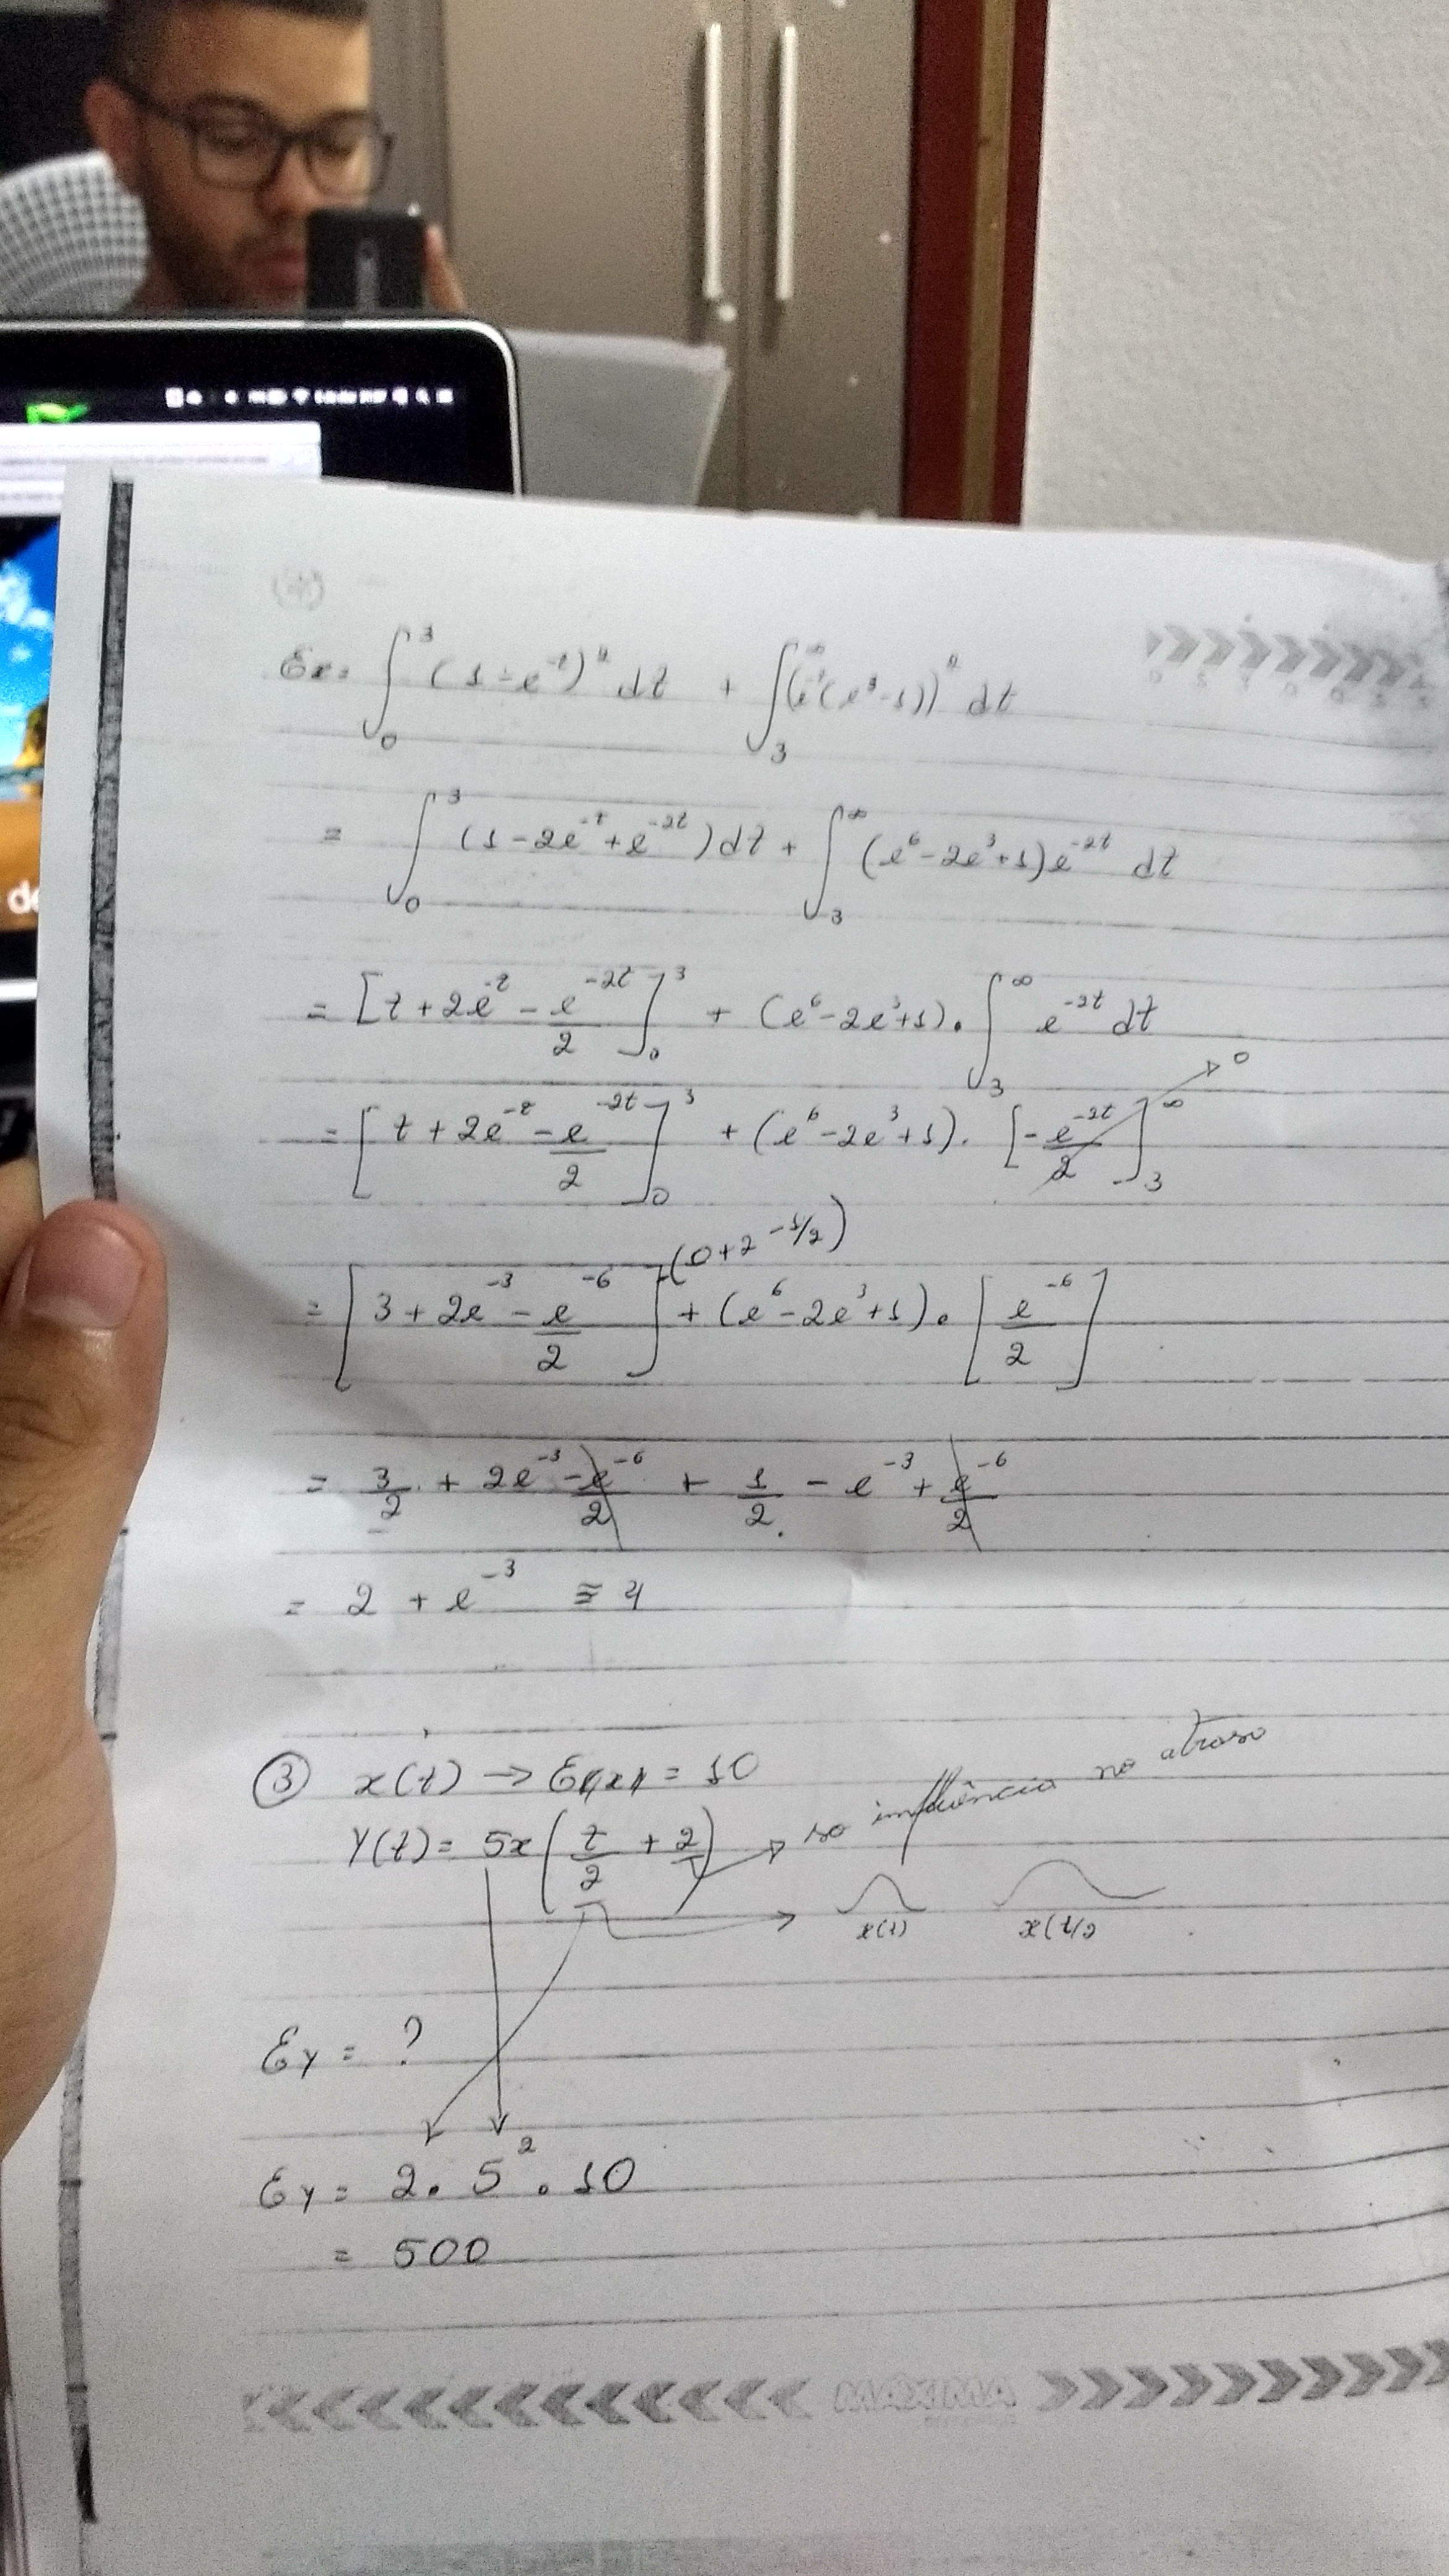 de
Ex = ∫₀³ (1 - e^-t)² dt + ∫₃^∞ (e^-t(e³-1))² dt
= ∫₀³ (1 - 2e^-t + e^-2t) dt + ∫₃^∞ (e⁶ - 2e³ + 1) e^-2t dt
= [t + 2e^-t - e^-2t/2]₀³ + (e⁶ - 2e³ + 1) . ∫₃^∞ e^-2t dt
= [t + 2e^-t - e^-2t/2]₀³ + (e⁶ - 2e³ + 1) . [-e^-2t/2]₃^∞ → 0
= [3 + 2e^-3 - e^-6/2] - (0 + 2 - 1/2) + (e⁶ - 2e³ + 1) . [e^-6/2]
= 3/2 + 2e^-3 - e^-6/2 + 1/2 - e^-3 + e^-6/2
= 2 + e^-3 ≅ 4
③ x(t) → E(x) = 10
Y(t) = 5x(t/2 + 2) → so influência no atraso
→ x(t) x(t/2
Ey = ?
Ey = 2 . 5² . 10
= 500
MÁXIMA